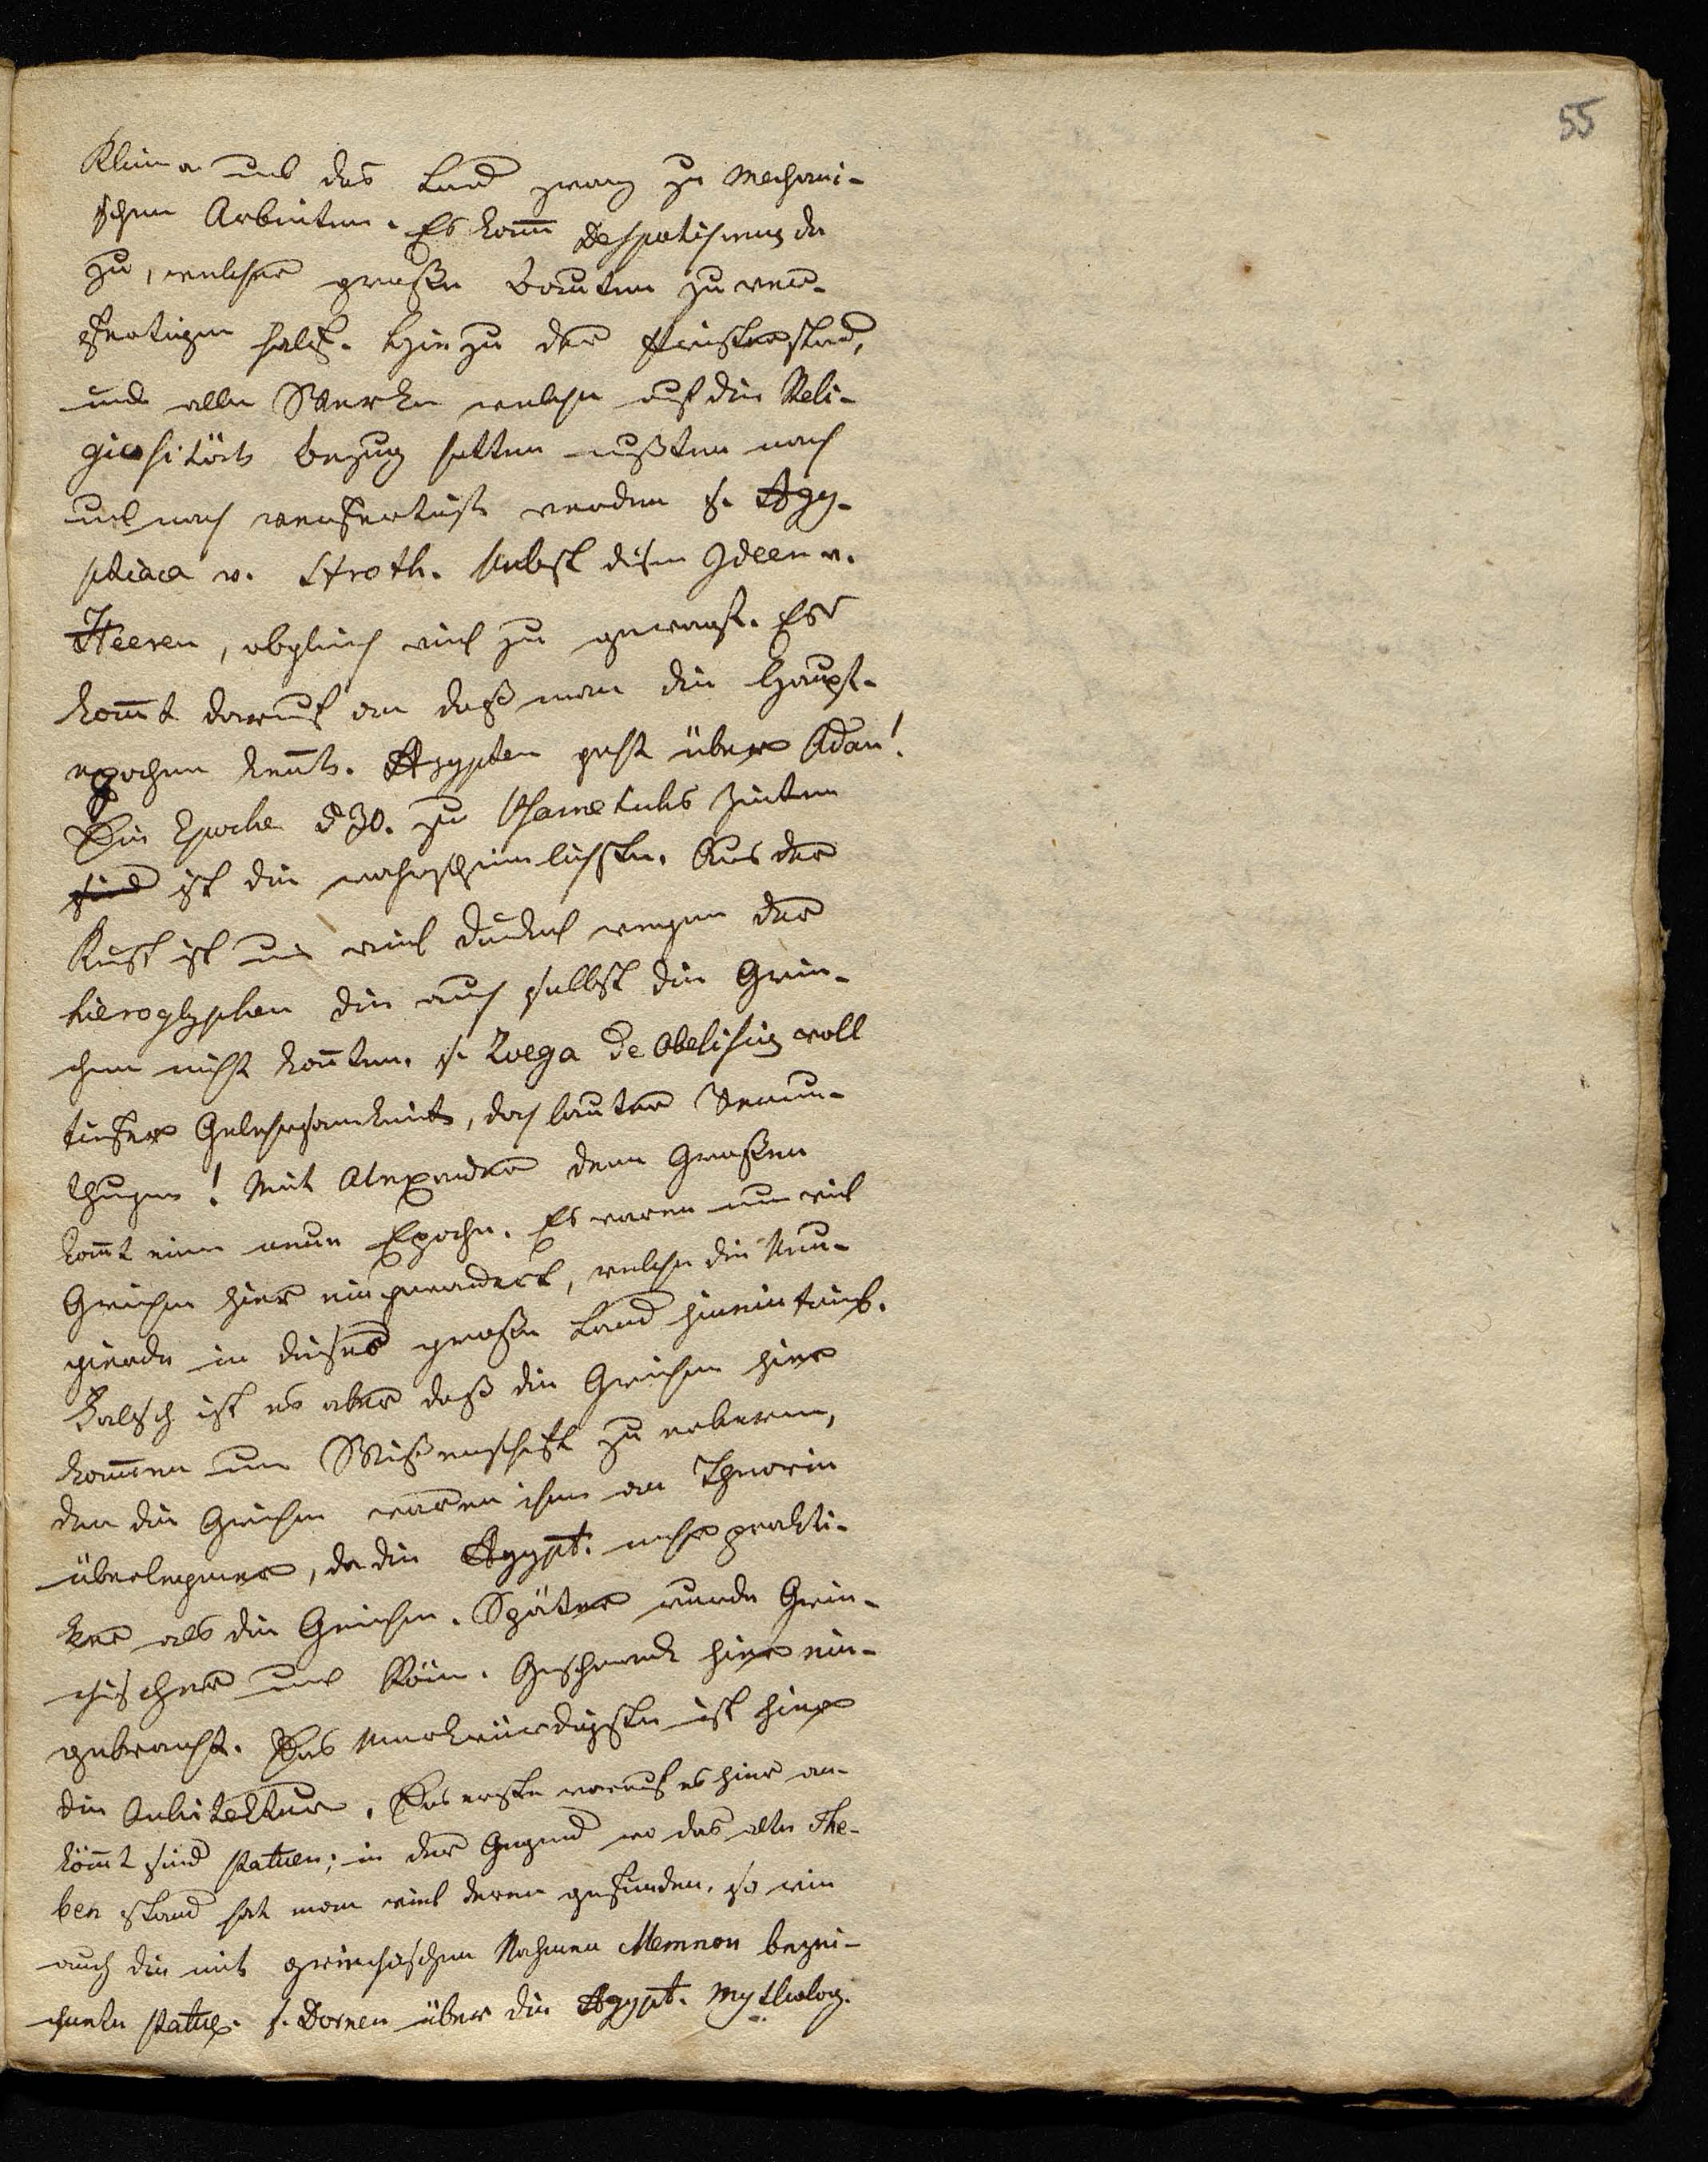 55
Klima und das Land zwang zu mechani-
schen Arbeiten. Es kam̅ Despotismus da
zu, welcher große Bauten zu ver-
fertigen half. Hiezu der Priesterstand,
und alle Werke welche auf die Reli-
giositöt Bezug hatten mußten nach
und nach verfertigt werden s. Agy-
ptiaca v. Stroth. Nebst disen Ideen v.
Heeren, obgleich viel zu gewagt. Es
kom̅t darauf an daß man die Haupt-
epochen ken̅t. Agypten geht über Adam!
Die Epoche 530. zu Psametichs Zeiten
ist die wahrscheinlichste. Aus der
Kunst ist uns viel dunkel wegen der
hieroglyphen die auch selbst die Grie-
chen nicht kon̅ten. s. Zoega de Obelisius voll
tiefer Gelehrsamkeit, doch lauter Vermu-
thungen! Mit Alexander dem Großen
kom̅t eine neue Epoche. Es waren nun viel
Griechen hier eingewandert, welche die Neu-
gierde in dieses große Land hineintrieb.
Falsch ist es aber daß die Griechen hier
kom̅en um Wißenschaft zu erlernen,
den die Griechen waren ihnen an Theorie
überlegener, da die Agypt. mehr prakti-
ker als die Griechen. Später wurde Grie-
chischer und Röm. Geschmack hier ein-
gebracht. Das Merkwürdigste ist hier
die Architektur. Das erste worauf es hier an-
köm̅t sind Statuen; in der Gegend wo das alte The-
ben stand hat man viel deren gefunden, so wie
auch die mit griechischen Nahmen Memnon bezei-
chnete Statue. s. Dornen über die Agypt. Mytholog.